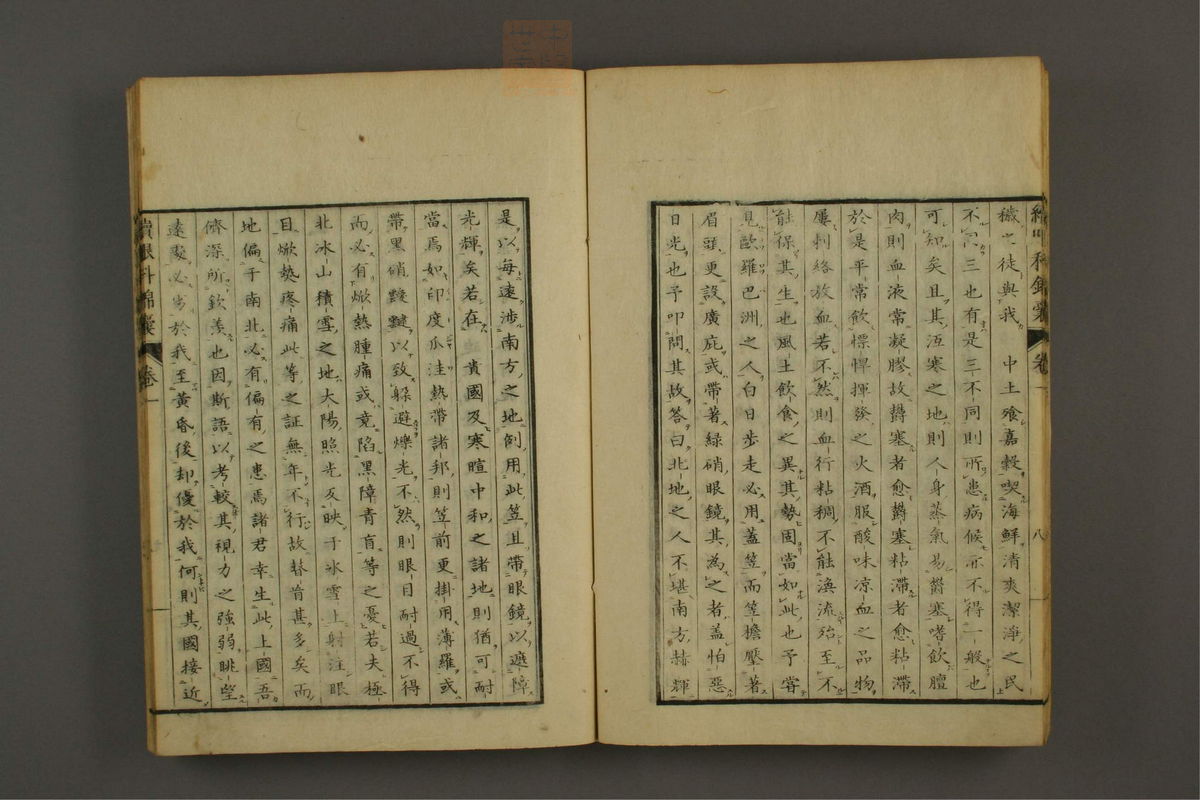 穢之徒與我 中土飱嘉穀喫海鮮清爽潔淨之民
不同三也有是三不同則所患病候亦不得一般也
可知矣且其沍寒之地則人身蒸氣易欝塞嗜飲膻
肉則血液常凝膠故欝塞者愈欝塞粘滯者愈粘滯
於是平常飲慓悍揮發之火酒服酸味凉血之品物
屢刺絡放血若不然則血行粘稠不能渙流殆至不
能保其生也風土飲食之異其勢固當如此也予嘗
見歐羅巴洲之人白日步走必用蓋笠而笠檐壓著
眉頭更設廣庇或帶著綠硝眼鏡其為之者蓋怕惡
日光也予叩問其故答曰北地之人不堪南方赫輝
是以每遠涉南方之地例用此笠且帶眼鏡以遮障
光輝矣若在 貴國及寒暄中和之諸地則猶可耐
當焉如印度瓜洼熱帶諸邦則笠前更掛用薄羅或
帶黑硝靉靆以致躲避爍光不然則眼目耐過不得
而必有焮熱腫痛或竟陷黑障青盲等之憂若夫極
北冰山積雪之地大陽照光反映于冰雪上射注眼
目焮熱疼痛此等之証無年不行故瞽盲甚多矣而
地偏于南北必有偏有之患焉諸君幸生此上國吾
儕深所欽羨也因斯語以考較其視力之強弱眺望
遠處必劣於我至黃昏後却優於我何則其國接近
續眼科錦囊 卷一
八